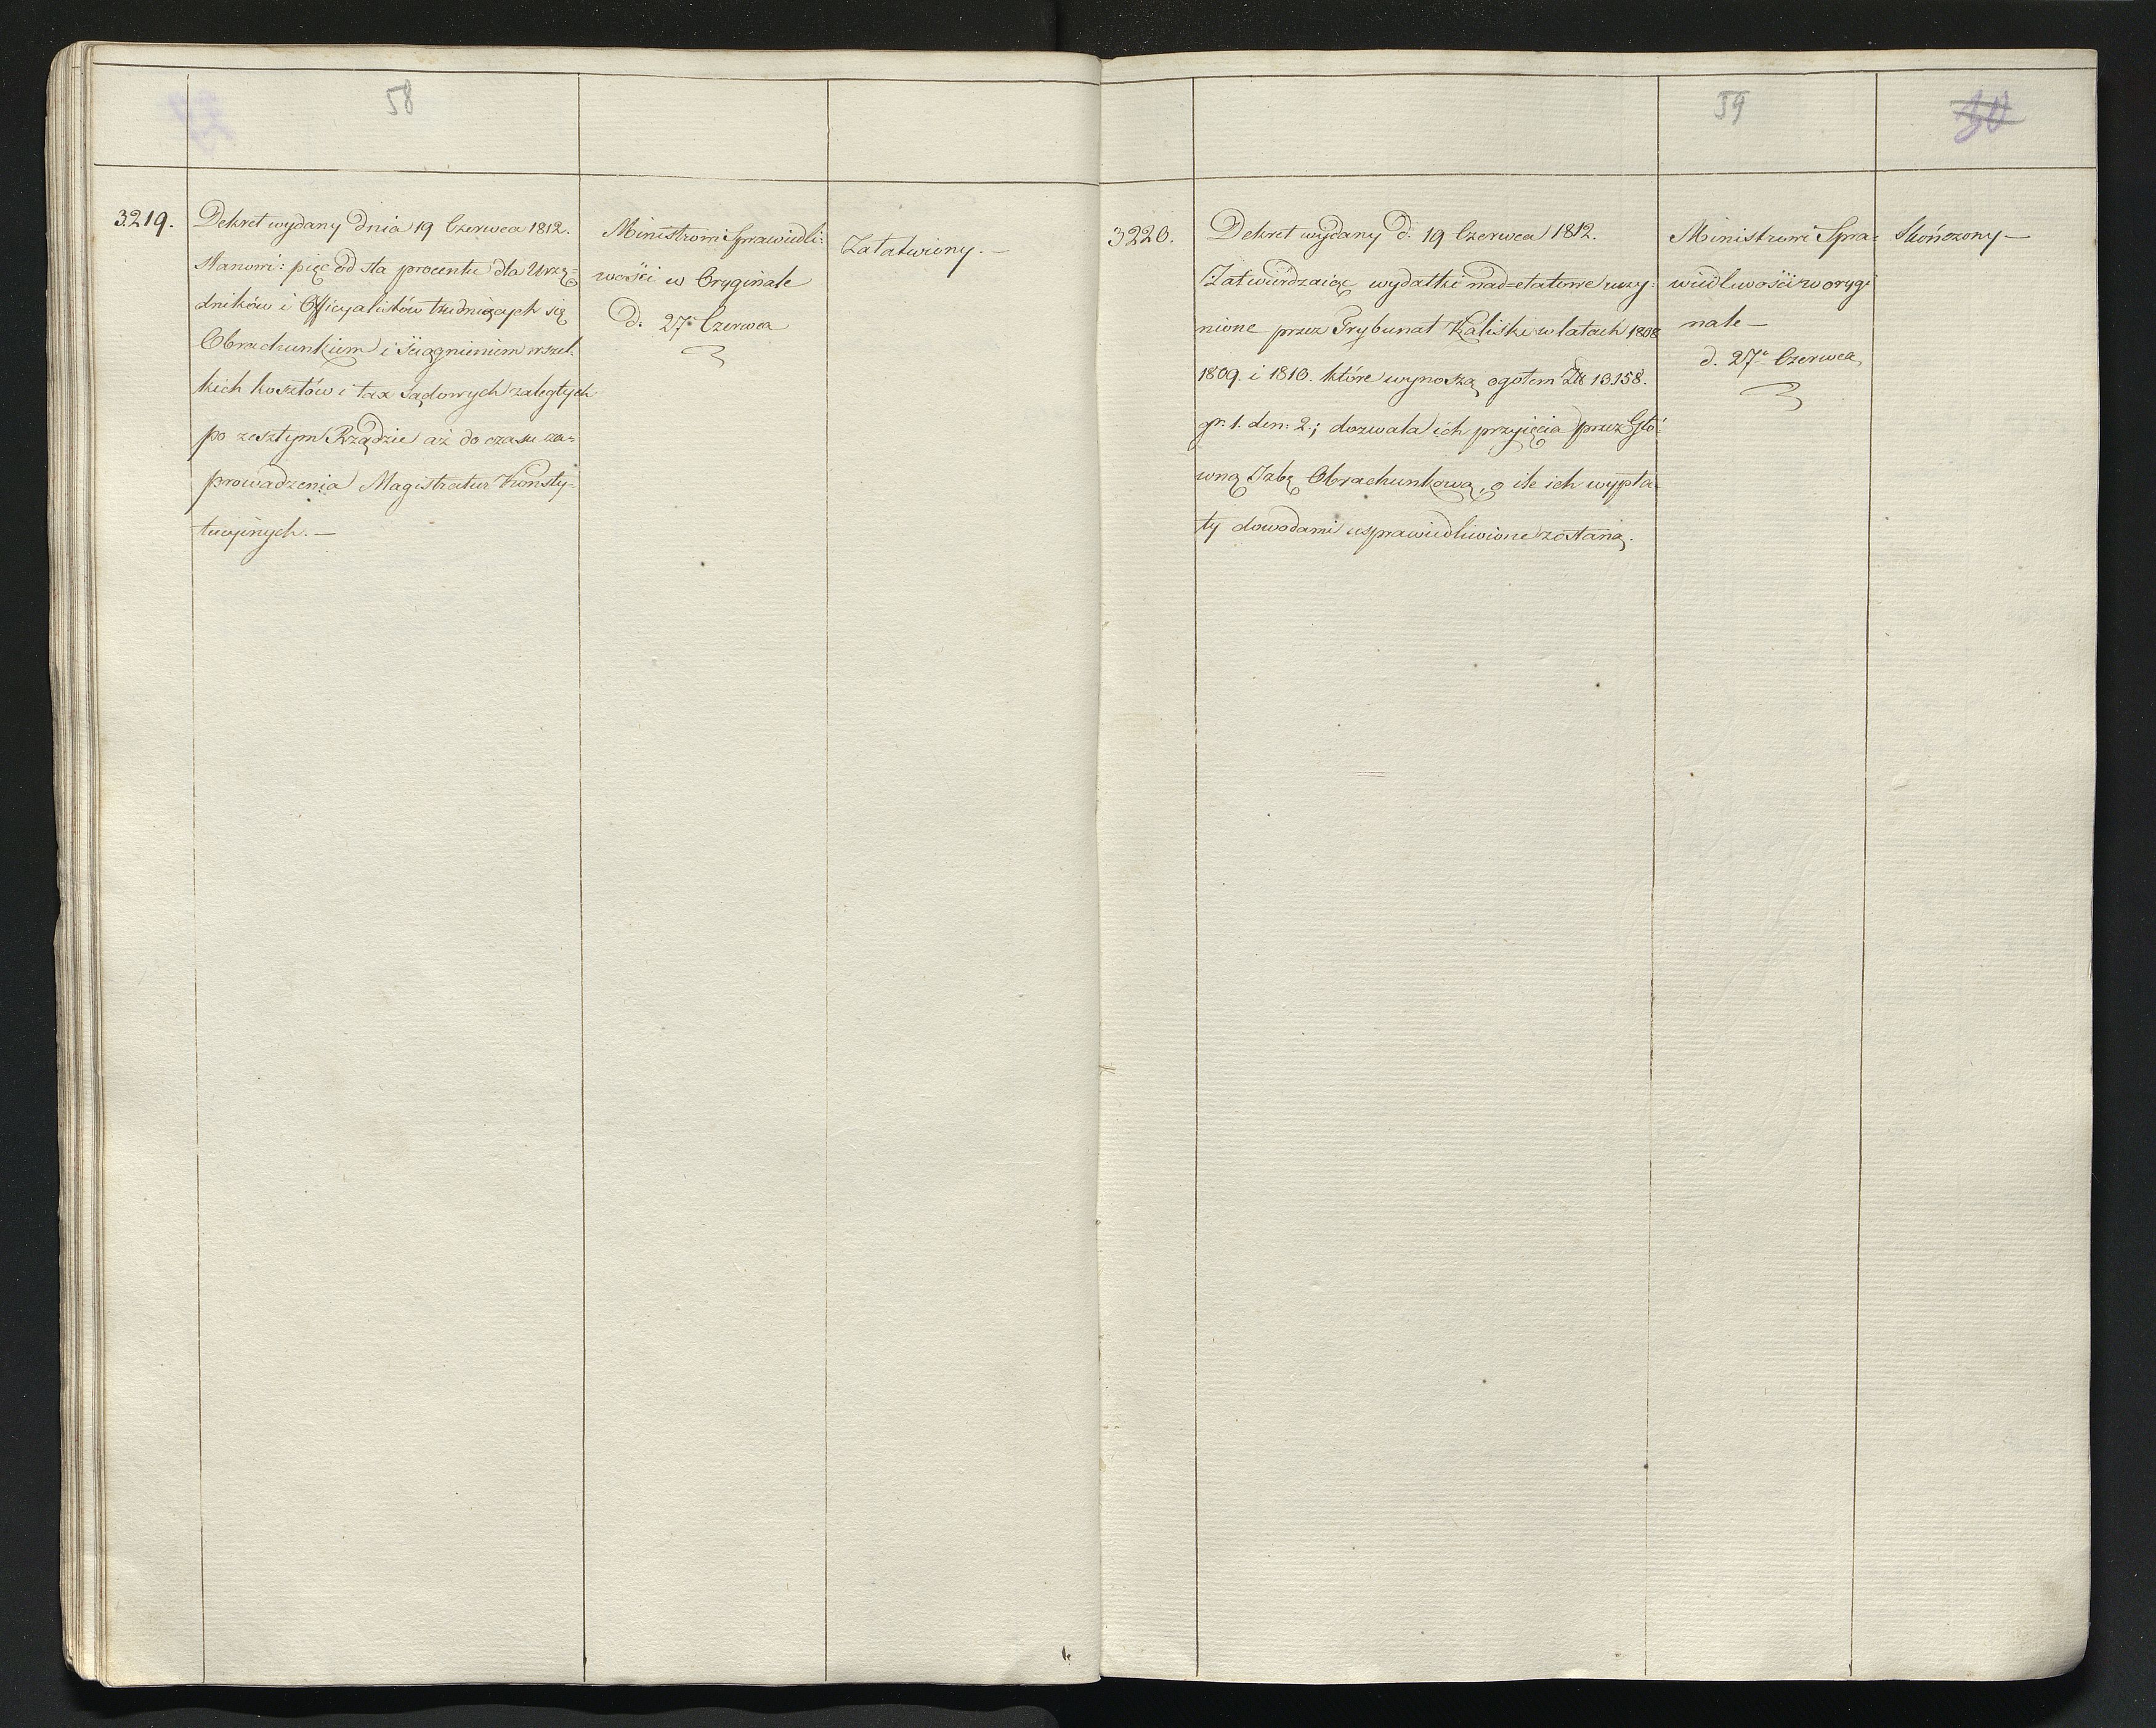 58
3219.
Dekret wydany Dnia 19 Czerwca 1812.
stanowi: pięć od sta procentu dla Urzę=
dników i Officyalistów trudniących się
Obrachunkiem i ściągnieniem wszel:
kich kosztów i tax sądowych zaległych
po zeszłym Rządzie aż do czasu za=
prowadzenia Magistratur Konsty=
tucyinych. —
Ministrowi Sprawiedli:
wości w Oryginale
D. 27. Czerwca
Załatwiony. —
59
30
3220.
Dekret wydany d: 19 Czerwca 1812.
Zatwierdzaiąc wydatki nad=etatowe uczy:
nione przez Trybunał Kaliski w latach 1808
1809. i 1810. które wynoszą ogołem Złł 13158.
gr. 1. den: 2.; dozwala ich przyięcia przez Głó:
wną Izbę Obrachunkową, o ile ich wypła=
ty dowodami usprawiedliwione zostaną.
Ministrowi Spra=
wiedliwości w orygi
nale —
d. 27. Czerwca
Skończony —